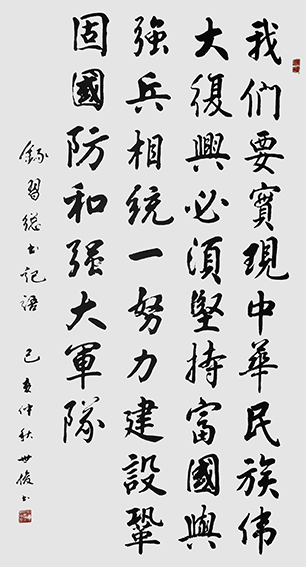 我们要實現中華民族伟
大復興必須堅持富國與
強兵相統一努力建設鞏
固國防和强大軍隊
錄習總书記语 己亥仲秋世俊书